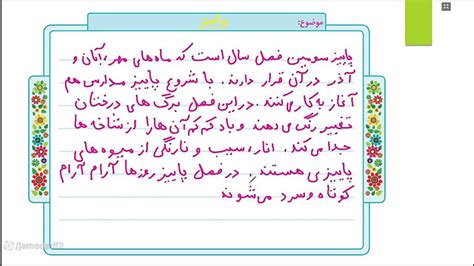 موضوع: پاییز
پاییز سومین فصل سال است که ماه‌های مهر، آبان و
آذر در آن قرار دارند. با شروع پاییز مدارس هم
آغاز به کار می‌کنند. در این فصل برگ های درختان
تغییر رنگ می دهند و باد کم کم آن ها را از شاخه ها
جدا می‌کند. انار، سیب و نارنگی از میوه های
پاییزی هستند. در فصل پاییز روزها آرام آرام
کوتاه و سرد می‌شوند